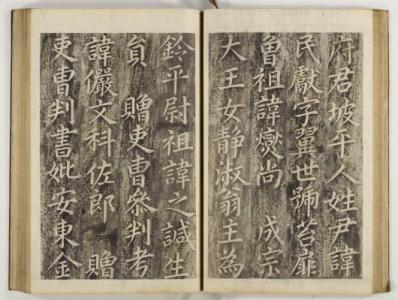 府君坡平人姓尹諱
民獻字翼世號苔扉
曾祖諱燮尚 成宗
大王女靜淑翁主為
鈴平尉祖諱之諴生
員 贈吏曹參判考
諱儼文科佐郎 贈
吏曹判書妣安東金